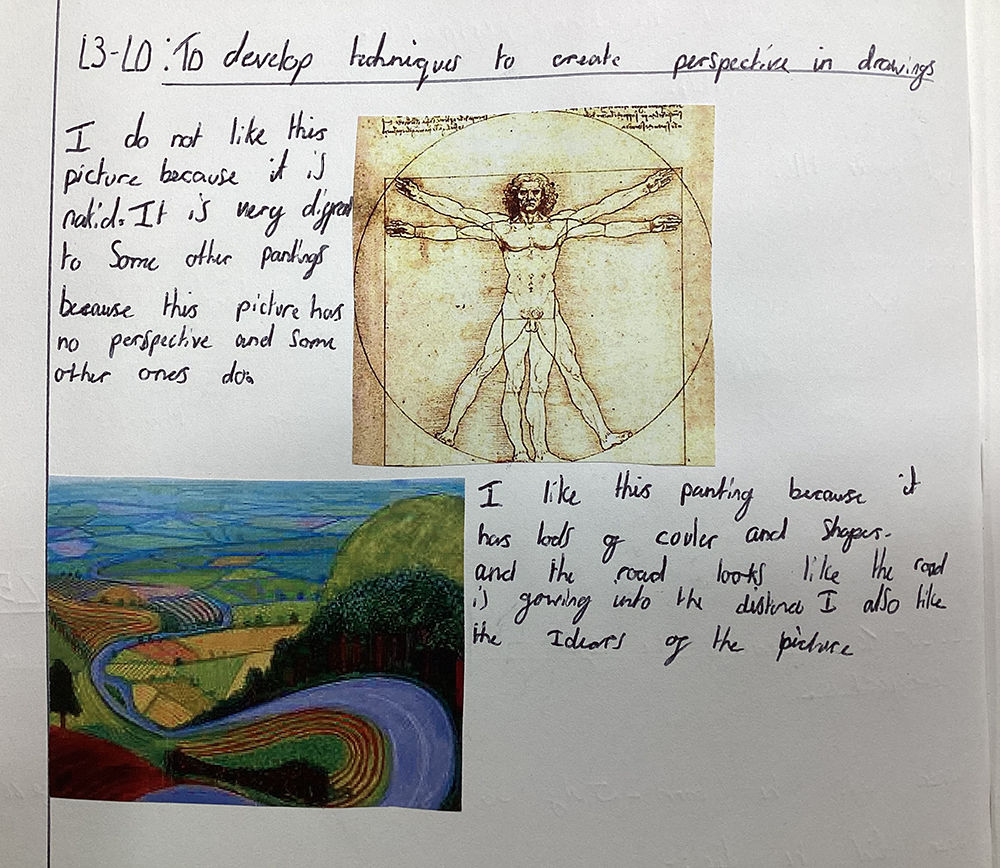 L3-LO: To develop techniques to create perspective in drawings
I do not like this
picture because it is
nakid. It is very
to Some other pantings
because this picture has
no perspective and Some
other ones do.
I like this panting because it
has lots of couler and Shapes.
and the road looks like the road
is gowing into the distince I also like
the Idears of the picture